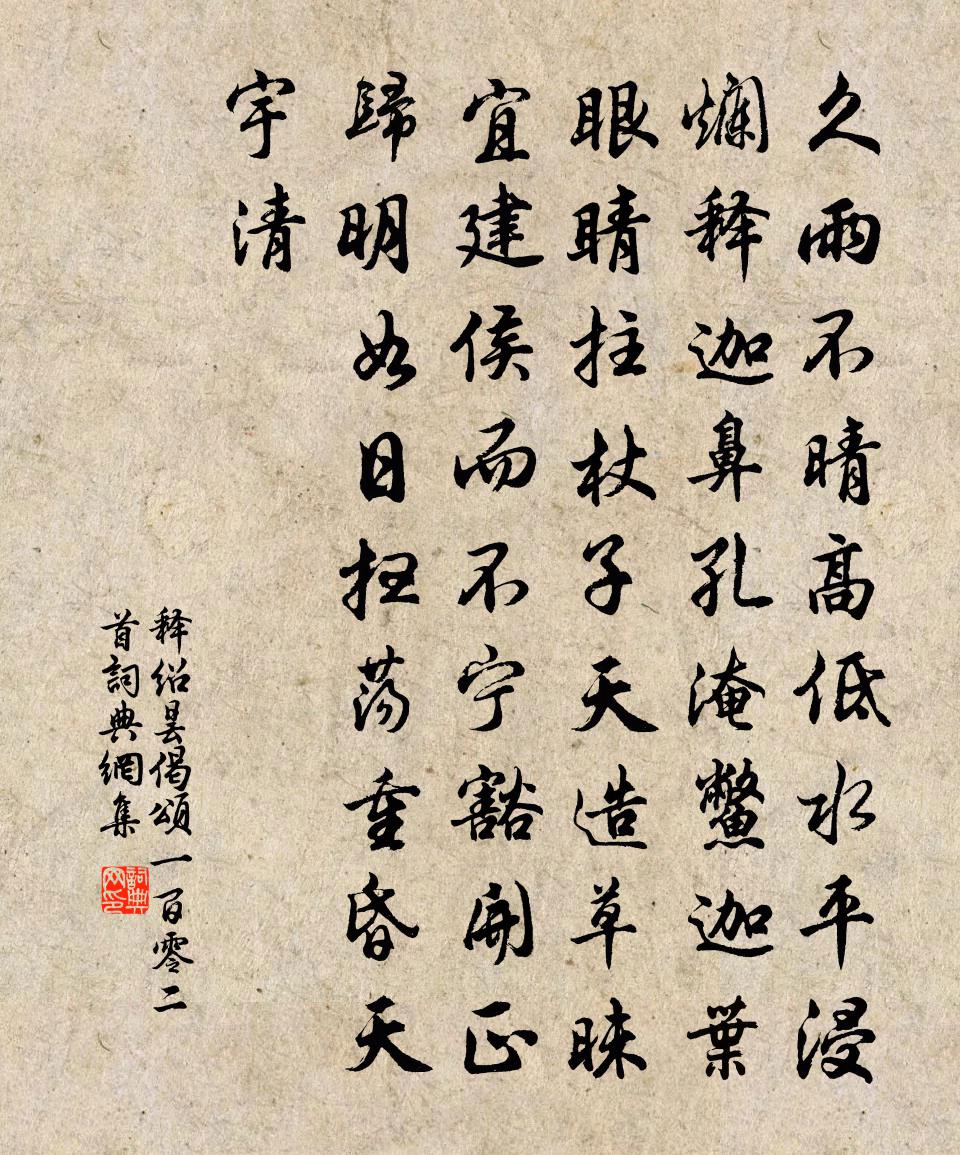 久雨不晴高低水平浸
爛释迦鼻孔淹鳖迦葉
眼睛拄杖子天造草昧
宜建侯而不宁豁開正
歸明如日扫荡重昏天
宇清
释绍昙偈頌一百零二
首詞典網集
詞典网印